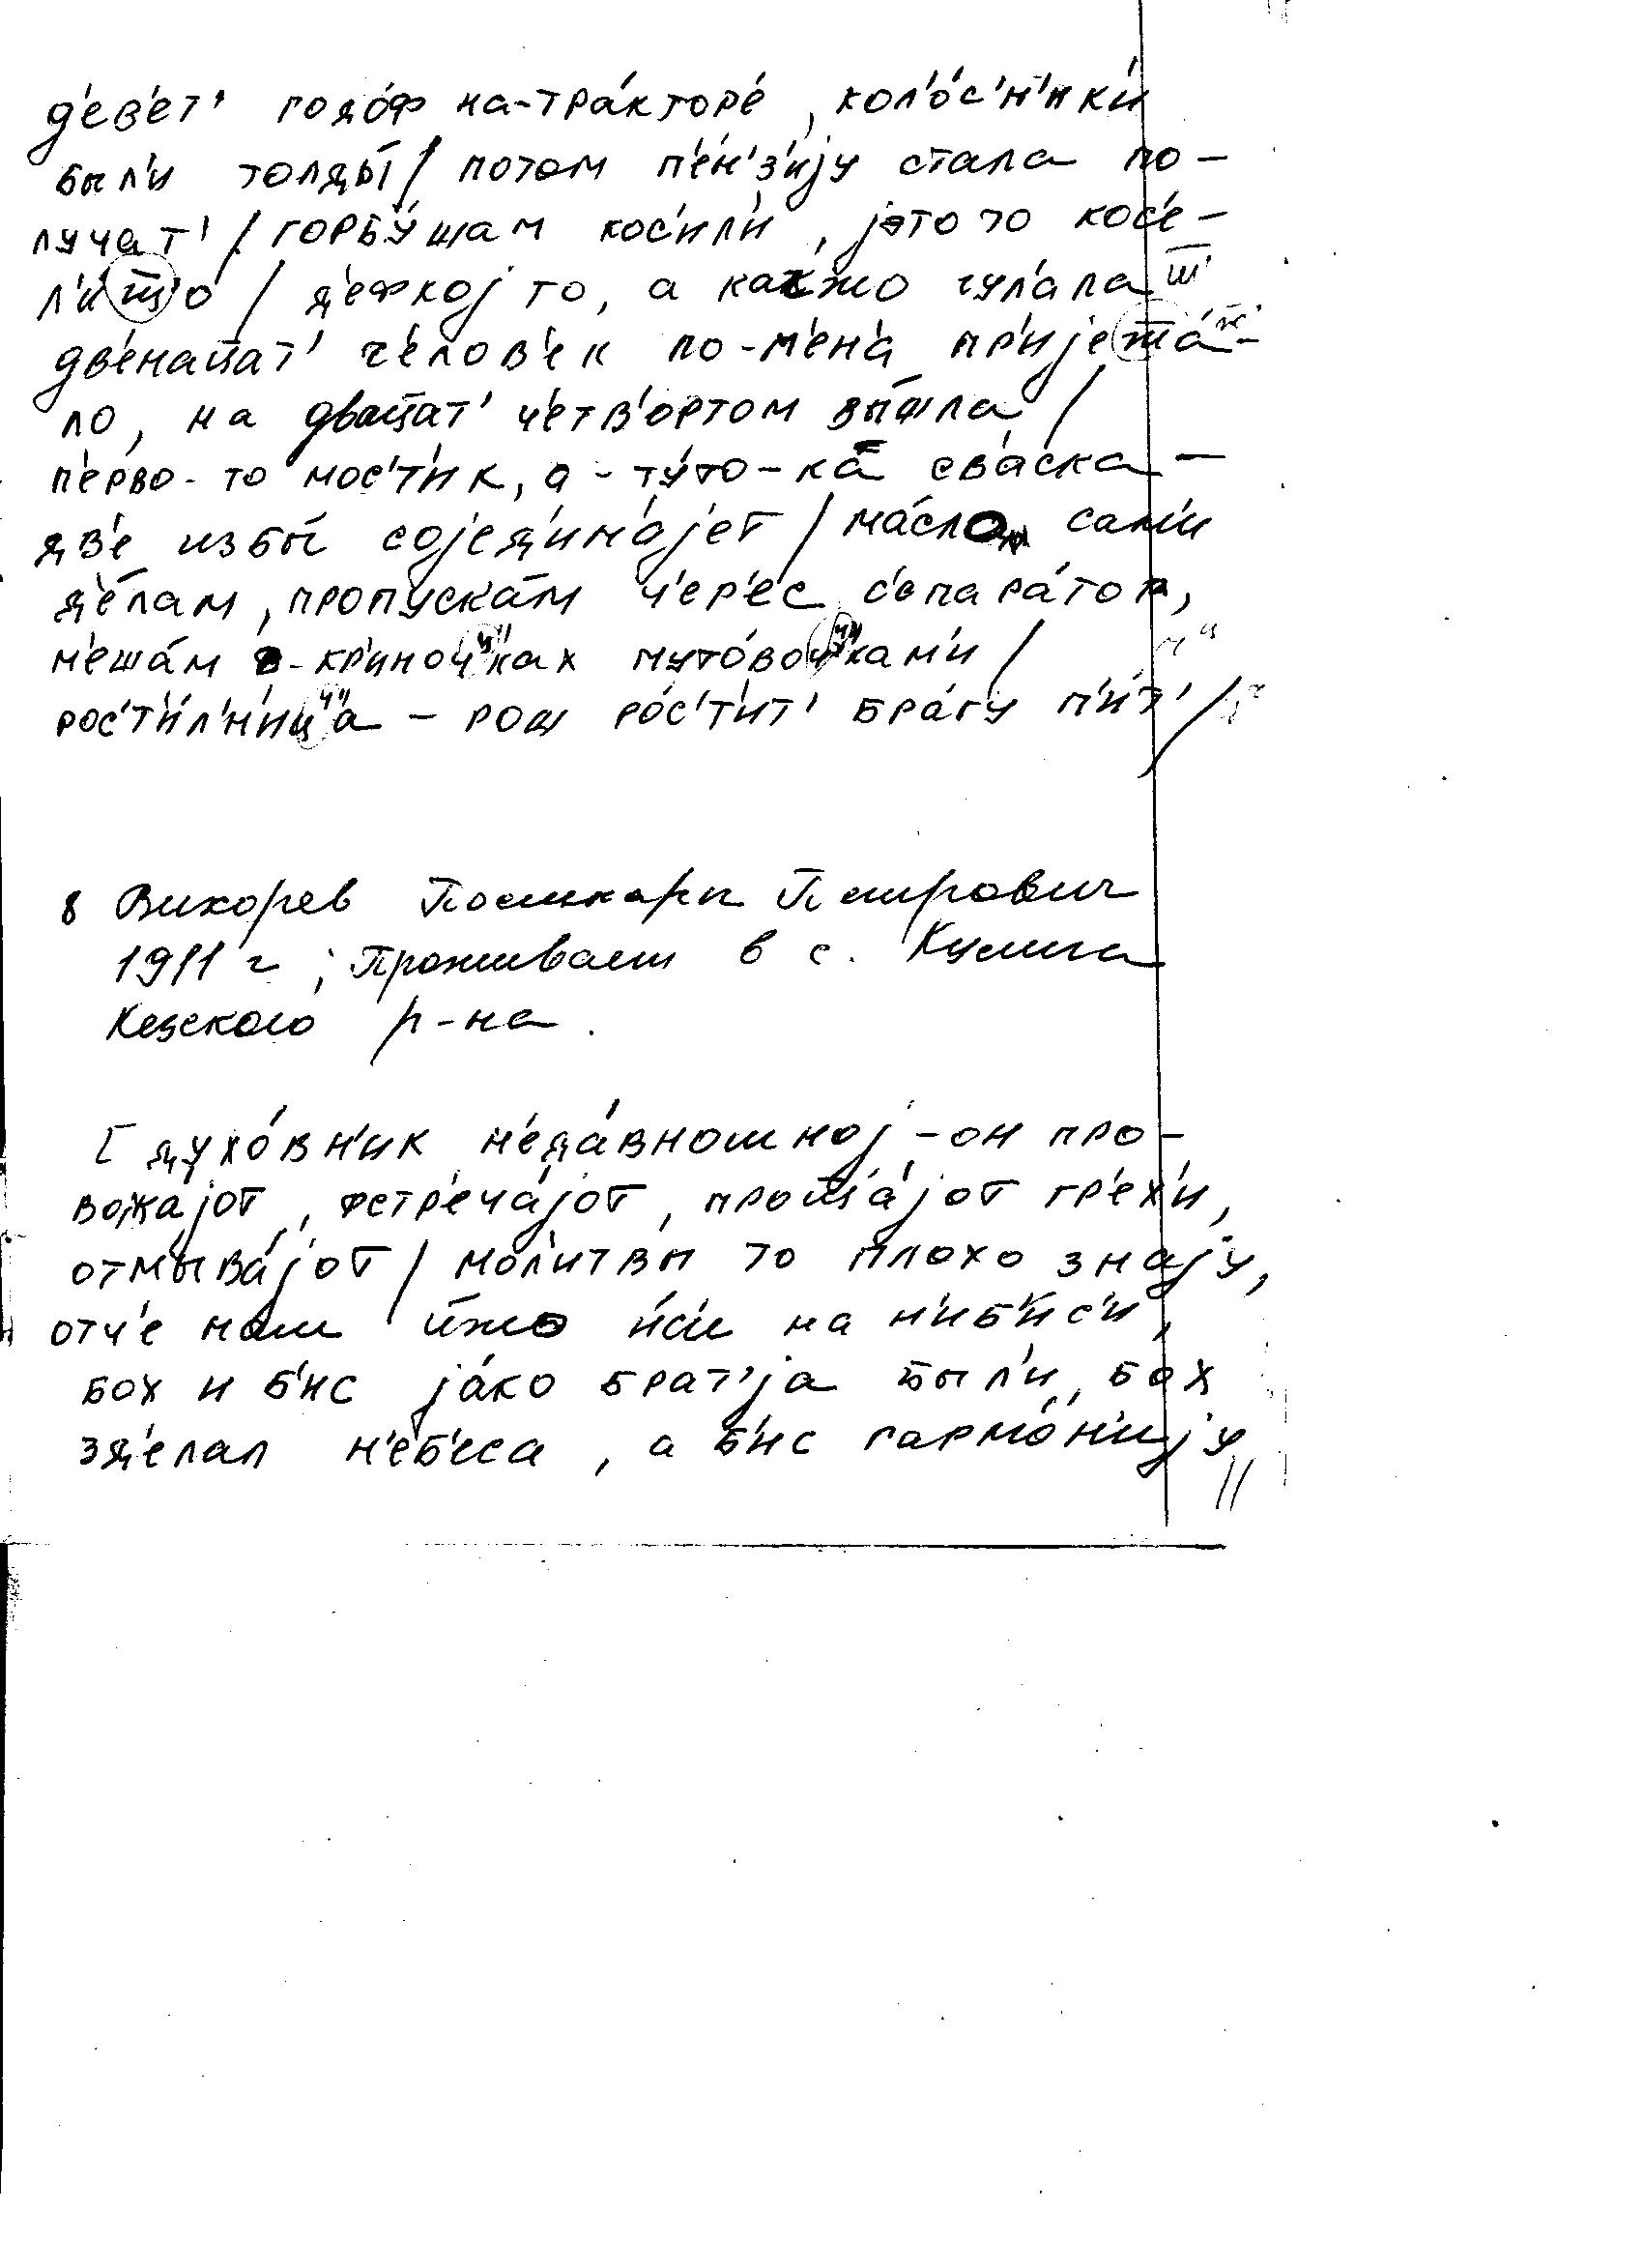 д'ев'ет' годо́ф на-тра́кторе́, кол'о́с'н'ик'и
был'и толды́ / потом п'е́н'з'ију стала по-
лучат' / горбу́шам кос'ил'и, јэто то кос'е-
л'и́ш̅'о / д'е́фкој то, а как жо гул'а́ла ш̅'
двена̄цат' ч'елов'е́к по-м'ен'а́ пр'ије́ж̅а́- ж̅'
ло, на два̄цат' ч'етв'ортом вы́шла /
п'е́рво-то мо́с'т'ик, а-ту́то-ка́ св'а́ска-
дв'е избы́ coјед'ин'а́јет / ма́сло сам'и
д'е́лам, пропуска́м ч'ер'ес с'епара́тор,
м'еша́м в-кр'и́ноч"ках муто́воч"кам'и /
рос'т'и́л'н'ич"а – рощ ро́с'т'ит' бра́гу п'и́т' /
8 Вихорев Поликарп Петрович
1911 г; Проживает в с. Кулига
Кезского р-на.
[ духо́вн'ик н'еда́вношној – он про-
вожа́јот, фстр'еча́јот, прош̅'а́јот гр'ех'и́,
отмыва́јот / мол'и́твы то плохо зна́ју,
отч'е наш и́жо йс'и на н'иб'ис'и́,
бох и б'ис ја́ко брат'ја был'и, бох
зд'е́лал н'еб'еса, а б'ис гармо́н'ију //